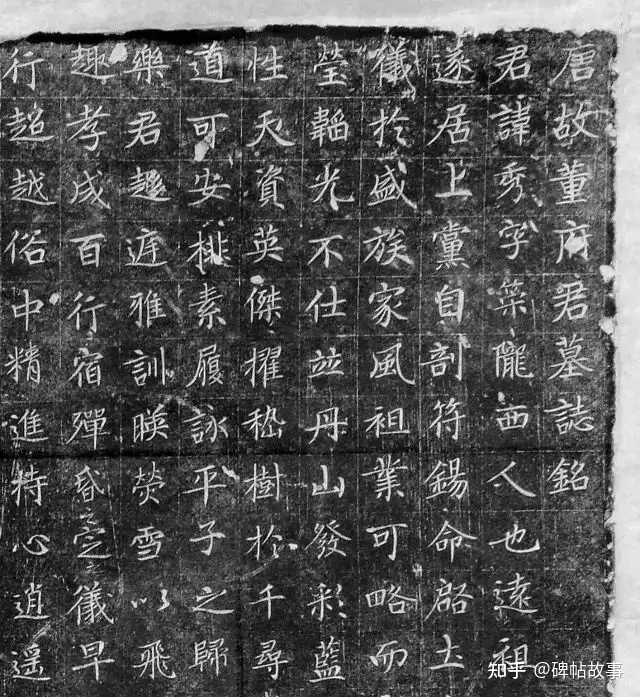 唐故董府君墓誌銘
君諱秀字隴西人也遠祖
遂居上黨自剖符錫命啓土
儀於盛族家風祖業可略而
瑩韜光不仕並丹山發彩藍
性天資英傑擢嵇樹於千尋
道可安排素履詠平子之歸
樂君趨庭雅訓暎熒雪以飛
趣孝成百行宿殫昏定之儀早
行超越俗中精進持心逍遥
知乎 @碑帖故事